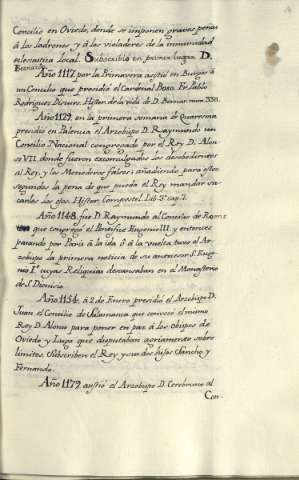 Concilio en Oviedo, donde se imponen graves penas
á los ladrones y á los violadores de la inmunidad
eclesiastica local. Subscribió en primer lugar D.
Bernardo.
Año 1117. por la Primavera asistió en Burgos á
un Concilio que presidió el Cardenal Boso. Fr. Pablo
Rodriguez Discurs. Histor. de la vida de D. Bernar. num. 338.
Año 1129. en la primera semana de Quaresma
presidió en Palencia el Arzobispo D. Raymundo un
Concilio Nacional congregado por el Rey D. Alon
so VII. donde fueron excomulgados los desobedientes
al Rey, y los Monederos falsos: añadiendo para estos
segundos la pena de que pueda el Rey mandar sa
carles los ojos. Histor. Compostel. Lib. 3. cap. 7.
Año 1148. fue D. Raymundo al Concilio de Rems
que congregó el Pontifice Eugenio III. y entonces
pasando por París á la ida ó á la vuelta tuvo el Ar
zobispo la primera noticia de su antecesor S. Euge
nio I. cuyas Reliquias descansaban en el Monasterio
de S. Dionisio.
Año 1154. á 2 de Enero presidió el Arzobispo D.
Juan el Concilio de Salamanca que convocó el mismo
Rey D. Alonso para poner en paz á los obispos de
Oviedo y Lugo que disputaban agriamente sobre
limites. Subscriben el Rey y sus dos hijos Sancho y
Fernando.
Año 1179. asistió el Arzobispo D. Cerebruno al
Con-